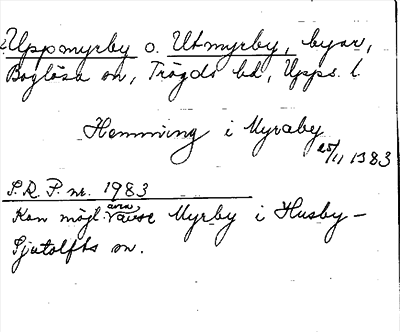 Uppmyrby o. Utmyrby, byar,
Boglösa sn, Trögds hd, Upps. l.
Hemming i Myraby
25/11 1383
S.R.P. nr. 1983
Kan möjl. även avse Myrby i Husby-
Sjutolfts sn.